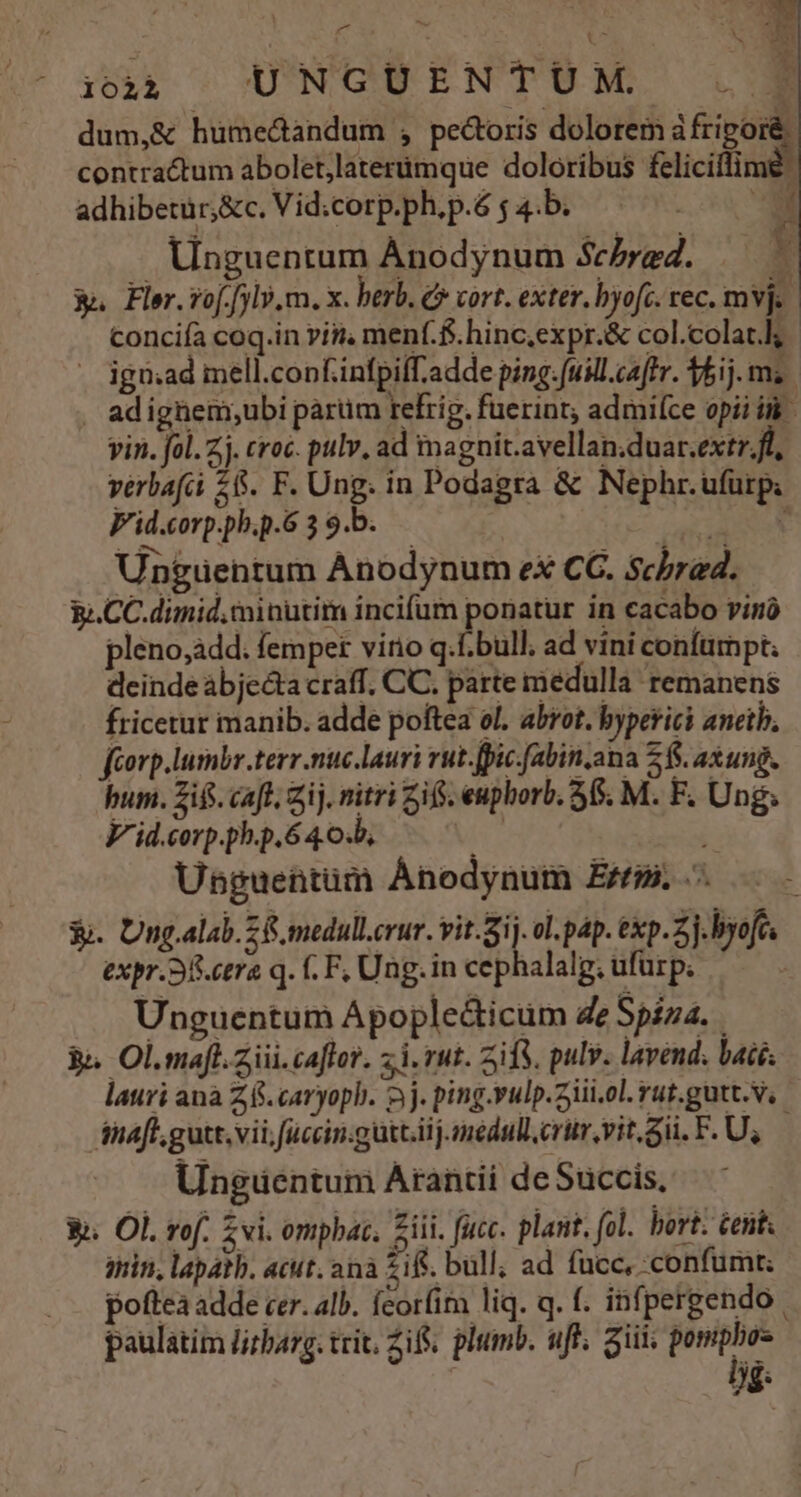 1022 UNGUENTUM.
dum,& humectandum , pectoris dolorem à frigore
contractum abolet,laterúmque doloribus felicissimè
adhibetur,&c. Vid.corp.ph.p.654.b.
Unguentum Anodynum Schræd.
℞. Flor.ros.sylv.m. x. herb. & cort. exter. hyosc. rec. mvj.
concisa coq.in vin. mens.ß.hinc,expr.& col.colat.l,
ign.ad mell.cons.inspiss.adde ping.suill.castr. ℔ij. m,
ad ignem,ubi parùm refrig. fuerint, admisce opii in
vin. sol. ʒj. croc. pulv, ad magnit.avellan.duar.extr.fl,
verbasci ℥ß. F. Ung. in Podagra & Nephr.usurp.
Vid.corp.ph.p.639.b.
Unguentum Anodynum ex CC. Schræd.
℞.CC.dimid.minutim incisum ponatur in cacabo vinò
pleno,add. semper vino q.s.bull. ad vini consumpt.
deinde abjecta crass. CC. parte medulla remanens
fricetur manib. adde postea ol. abrot. hyperici aneth.
scorp.lumbr.terr.nuc.lauri rut.spic.sabin.ana ℥ß. axung.
hum. ℥iß. cast. ʒij. nitri ʒiß. euphorb. ʒß. M. F. Ung.
Vid.corp.ph.p.640.b.
Unguentum Anodynum Ettm.
℞. Ung.alab.℥ß.medull.crur. vit.ʒij. ol.pap. exp.ʒj.hyosc.
expr.℈ß.cera q. s. F, Ung.in cephalalg. usurp.
Unguentum Apoplecticum de Spina.
℞. Ol.mast.ʒiii.castor. ʒi. rut. ʒiß. pulv. lavend. bacc.
lauri ana ʒß.caryoph. ℈j. ping.vulp.ʒiii.ol.rut.gutt.v.
mast.gutt.vii.succin.gutt.iij.medull.crur.vit.ʒii. F. U.
Unguentum Arantii de Succis.
℞. Ol. ros. ℥vi. omphac. ℥iii. succ. plant. sol. hort. cent.
min. lapath. acut. ana ℥iß. bull. ad succ. consumt.
postea adde cer. alb. seorsim liq. q. s. inspergendo
paulatim litharg. trit. ℥iß. plumb. ust. ʒiii. pompho-
lyg.